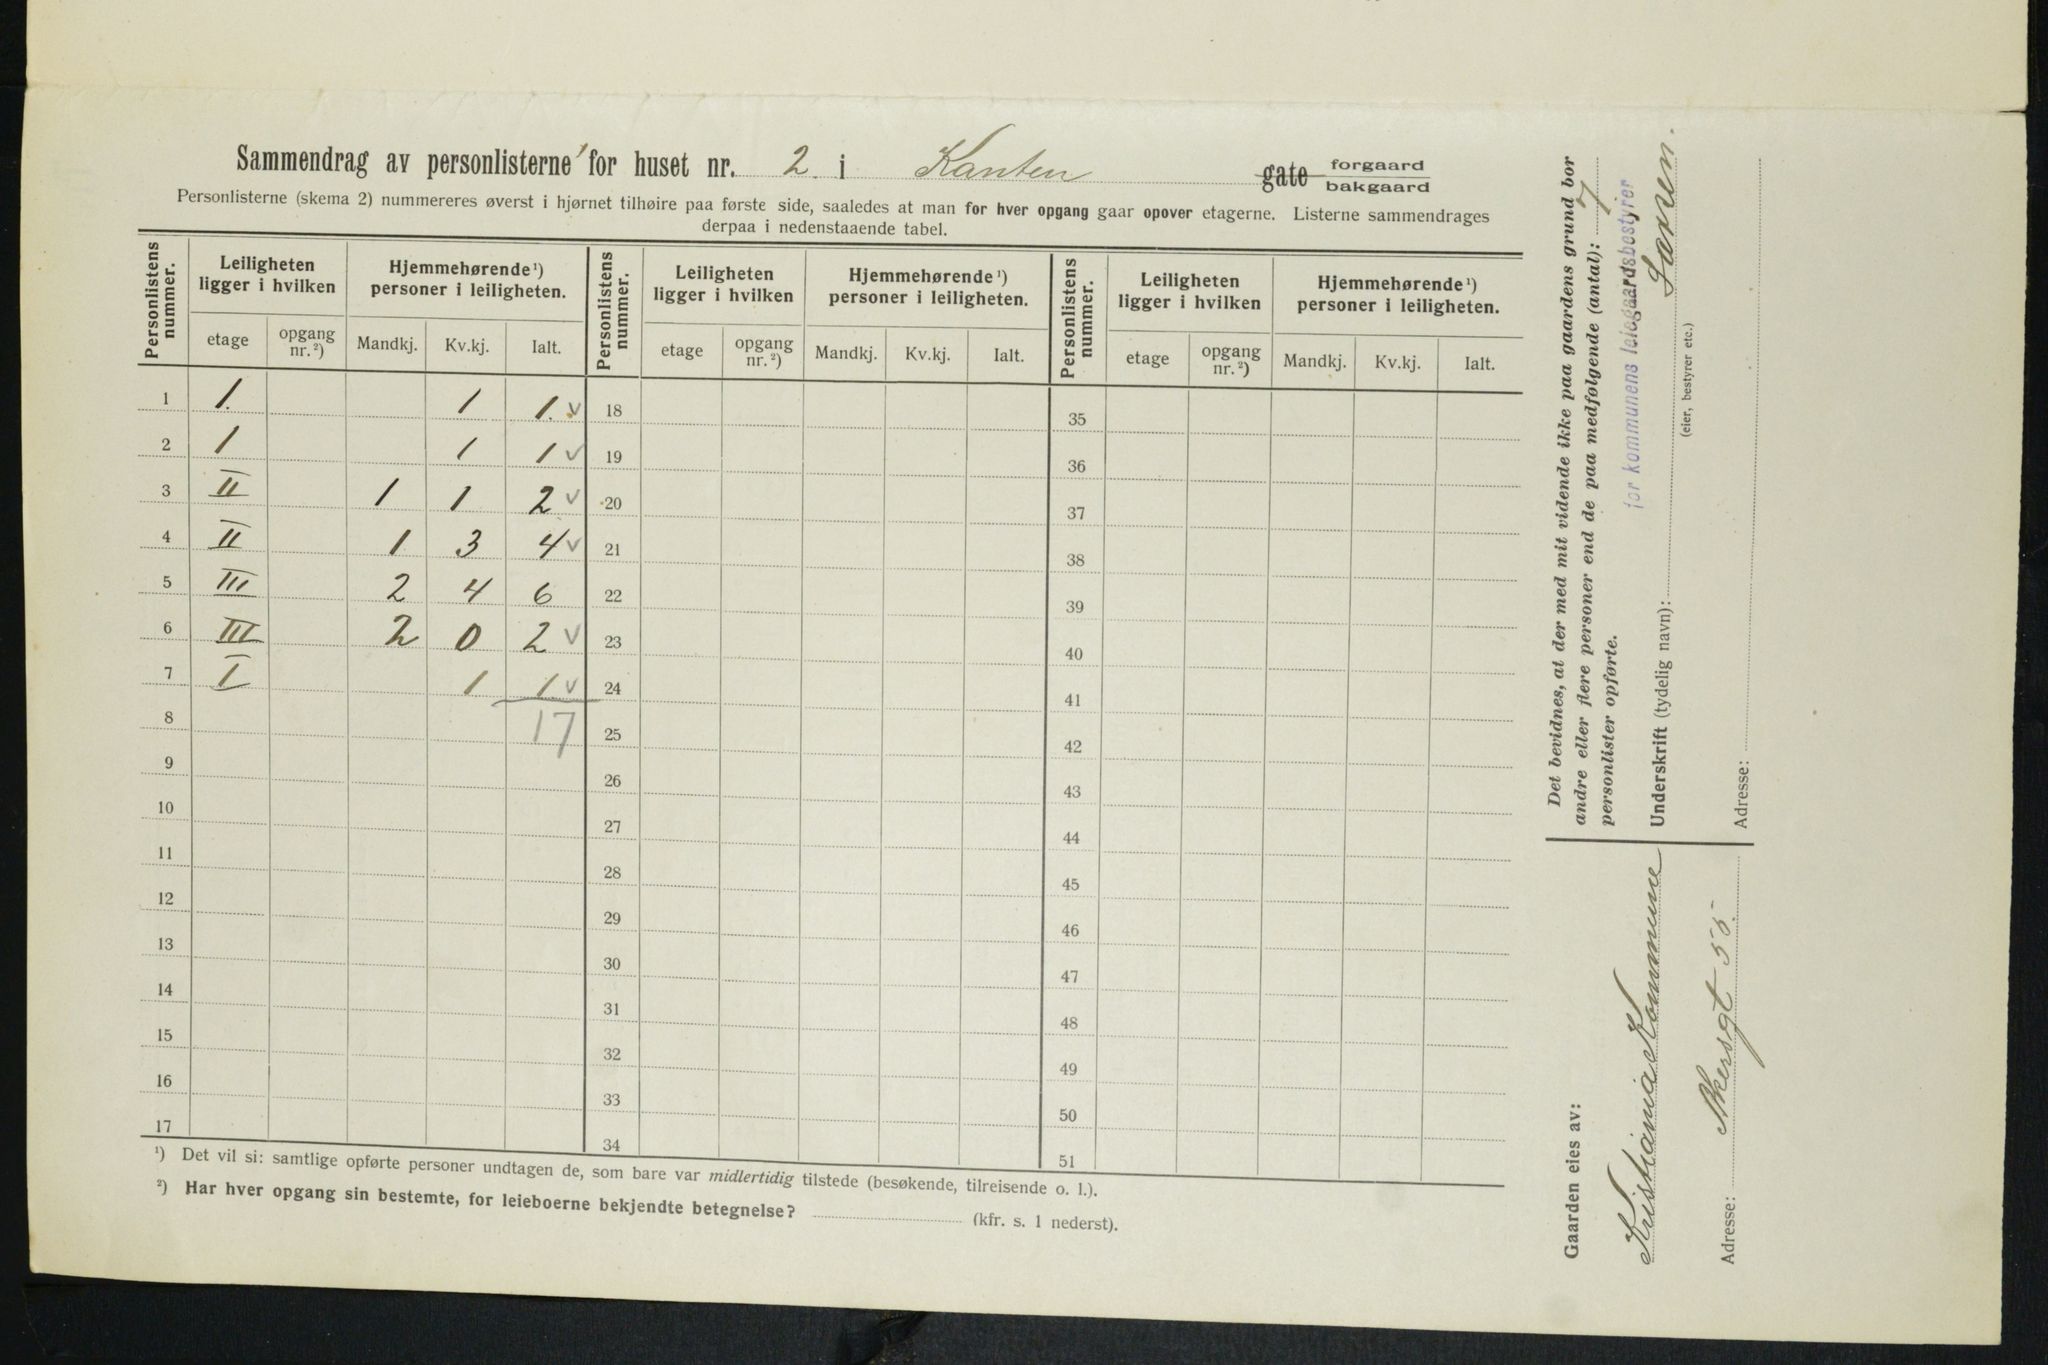 Sammendrag av personlisterne for huset nr. 2. i Kanten gate forgaard
bakgaard
Personlisterne (skema 2) nummereres øverst i hjørnet tilhøire paa første side, saaledes at man for hver opgang gaar opover etagerne. Listerne sammendrages
derpaa i nedenstaaende tabel.
Personlistens nummer. Leiligheten ligger i hvilken Hjemmehørende ¹) personer i leiligheten. Personlistens nummer. Leiligheten ligger i hvilken Hjemmehørende ¹) personer i leiligheten. Personlistens nummer. Leiligheten ligger i hvilken Hjemmehørende ¹) personer i leiligheten.
etage opgang nr. ²) Mandkj. Kv.kj. Ialt. etage opgang nr. ²) Mandkj. Kv.kj. Ialt. etage opgang nr. ²) Mandkj. Kv.kj. Ialt.
1 1. 1 1. v 18 35
2 1 1 1 v 19 36
3 II 1 1 2 v 20 37
4 II 1 3 4 v 21 38
5 III 2 4 6 22 39
6 III 2 0 2 v 23 40
7 I 1 1 v 24 41
8 17 25 42
9 26 43
10 27 44
11 28 45
12 29 46
13 30 47
14 31 48
15 32 49
16 33 50
17 34 51
¹) Det vil si: samtlige opførte personer undtagen de, som bare var midlertidig tilstede (besøkende, tilreisende o. l.).
²) Har hver opgang sin bestemte, for leieboerne bekjendte betegnelse? (kfr. s. 1 nederst).
Det bevidnes, at der med mit vidende ikke paa gaardens grund bor
andre eller flere personer end de paa medfølgende (antal): 7
personlister opførte.
for kommunens leiegaardsbestyrer
Underskrift (tydelig navn): Larsen.
(eier, bestyrer etc.)
Adresse:
Gaarden eies av:
Kristiania Kommune
Adresse: Akersgt 55.